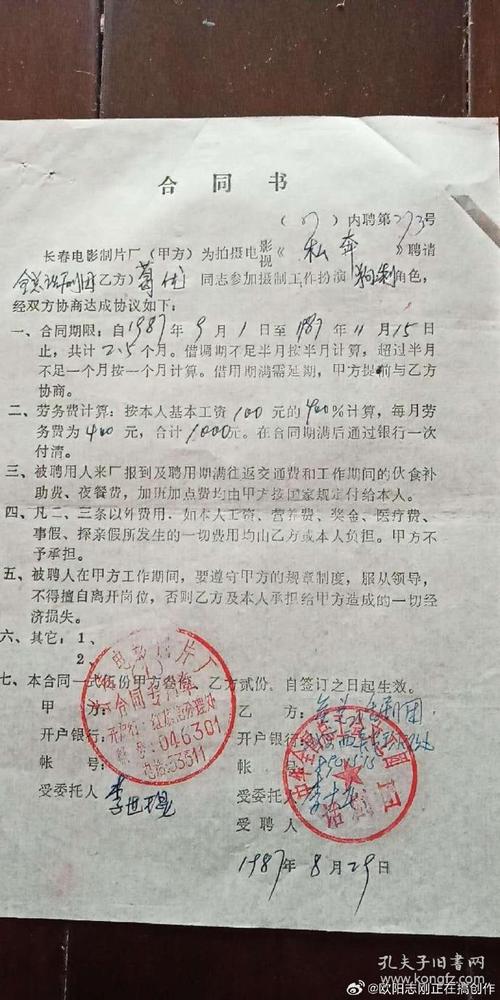 合同书
(87)内聘第273号
长春电影制片厂(甲方)为拍摄电影视《私奔》聘请
全总话剧团(乙方)葛优同志参加摄制工作扮演角色,
经双方协商达成协议如下:
一、合同期限:自1987年9月1日至1987年11月15日
止,共计2.5个月。借调期不足半月按半月计算,超过半月
不足一个月按一个月计算。借用期满需延期,甲方提前与乙方
协商。
二、劳务费计算:按本人基本工资100元的400%计算,每月劳
务费为400元,合计1000元。在合同期满后通过银行一次
付清。
三、被聘用人来厂报到及聘用期满往返交通费和工作期间的伙食补
助费、夜餐费,加班加点费均由甲方按国家规定付给本人。
四、凡二、三条以外费用,如本人工资、营养费、奖金、医疗费、
事假、探亲假所发生的一切费用均由乙方或本人负担。甲方不
予承担。
五、被聘人在甲方工作期间,要遵守甲方的规章制度,服从领导,
不得擅自离开岗位,否则乙方及本人承担给甲方造成的一切经
济损失。
六、其它:1、
2、
七、本合同一式伍份甲方叁份,乙方贰份,自签订之日起生效。
甲方: 乙方:全总话剧团
开户银行: 开户银行:
帐号: 帐号:
受委托人 受委托人
受聘人
1987年8月29日
电影制片厂
合同专用章
046301
电话53311
话剧团
孔夫子旧书网
@欧阳志刚正在搞创作